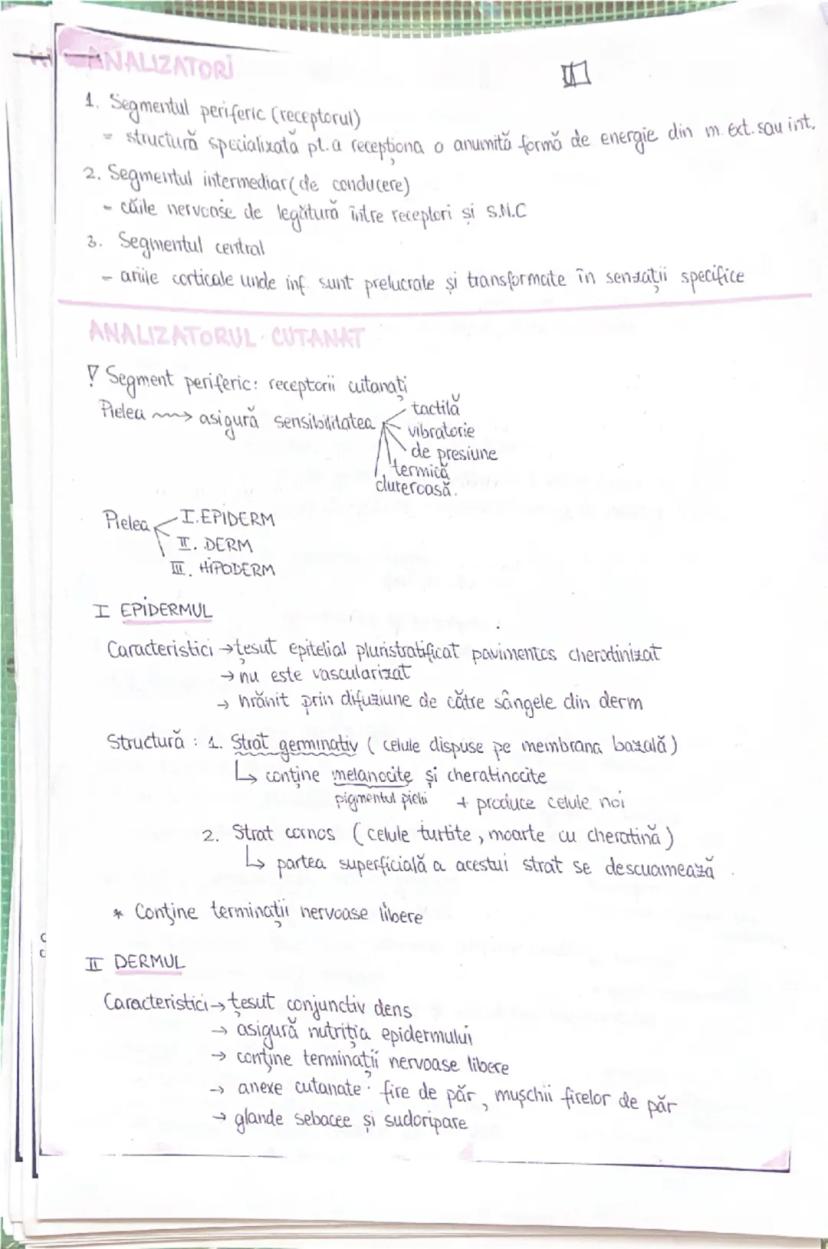 ANALIZATORI
1. Segmentul periferic (receptorul)
= structură specializată pt. a recepționa o anumită formă de energie din m. ext. sau int.
2. Segmentul intermediar (de conducere)
- căile nervoase de legătură între receptori și S.N.C
3. Segmentul central
- ariile corticale unde inf. sunt prelucrate și transformate în senzații specifice
ANALIZATORUL CUTANAT
! Segment periferic: receptorii cutanați
Pielea → asigură sensibilitatea
tactilă
vibratorie
de presiune
termică
dureroasă.
Pielea
I. EPIDERM
II. DERM
III. HIPODERM
I EPIDERMUL
Caracteristici → țesut epitelial pluristratificat pavimentos cheratinizat
→ nu este vascularizat
→ hrănit prin difuziune de către sângele din derm
Structură : 1. Strat germinativ ( celule dispuse pe membrana bazală )
↳ conține melanocite și cheratinocite
pigmentul pielii + produce celule noi
2. Strat cornos ( celule turtite , moarte cu cheratină )
↳ partea superficială a acestui strat se descuamează
* Conține terminații nervoase libere
II DERMUL
Caracteristici → țesut conjunctiv dens
→ asigură nutriția epidermului
→ conține terminații nervoase libere
→ anexe cutanate : fire de păr , mușchii firelor de păr
→ glande sebacee și sudoripare